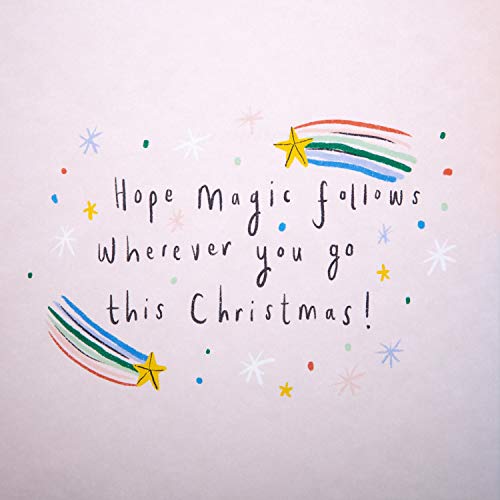 Hope Magic follows
Wherever you go
this Christmas!